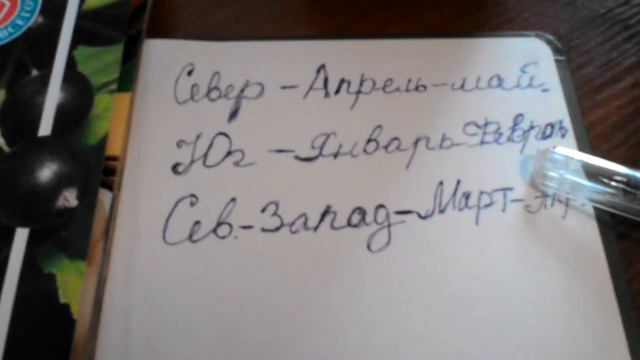 Север - Апрель-май.
Юг - Январь-Февраль
Сев.-Запад-Март-Ап